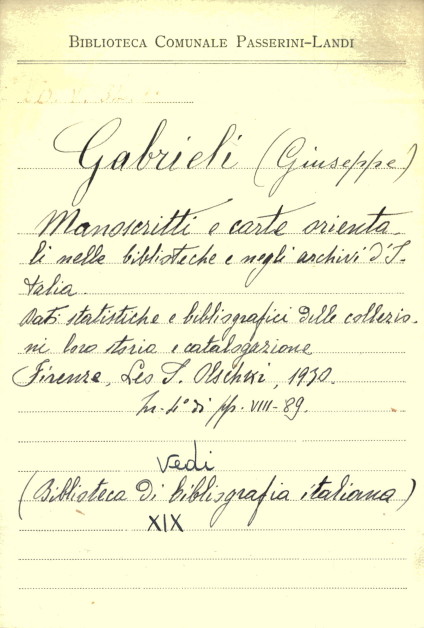 BIBLIOTECA COMUNALE PASSERINI-LANDI
Gabrieli (Giuseppe)
Manoscritti e carte orienta-
li nelle biblioteche e negli archivi d'I-
talia.
Dati statistiche e bibliografici delle collezio-
ni loro storia e catalogazione
Firenze, Leo S. Olschki, 1930.
In-4° di pp. VIII-89.
vedi
(Biblioteca di bibliografia italiana)
XIX